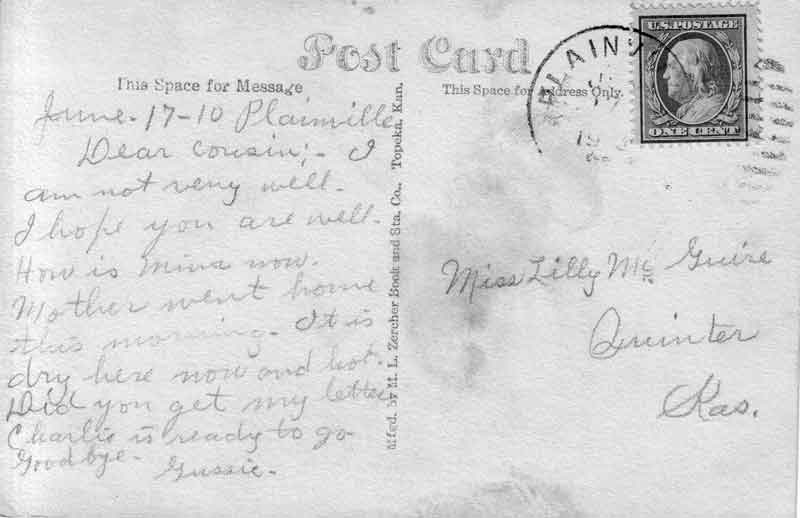 Post Card
This Space for Message
This Space for Address Only.
U.S. POSTAGE
ONE CENT
PLAINV
19
June-17-10 Plainville
Dear Cousin;- I
am not very well.
I hope you are well.
How is Mina now.
Mother went home
this morning. It is
dry here now and hot.
Did you get my letter
Charlie is ready to go
Goodbye-
Gussie-
Mfed. by M. L. Zercher Book and Sta. Co., Topeka, Kan.
Miss Lilly Mc Guire
Quinter
Kas.